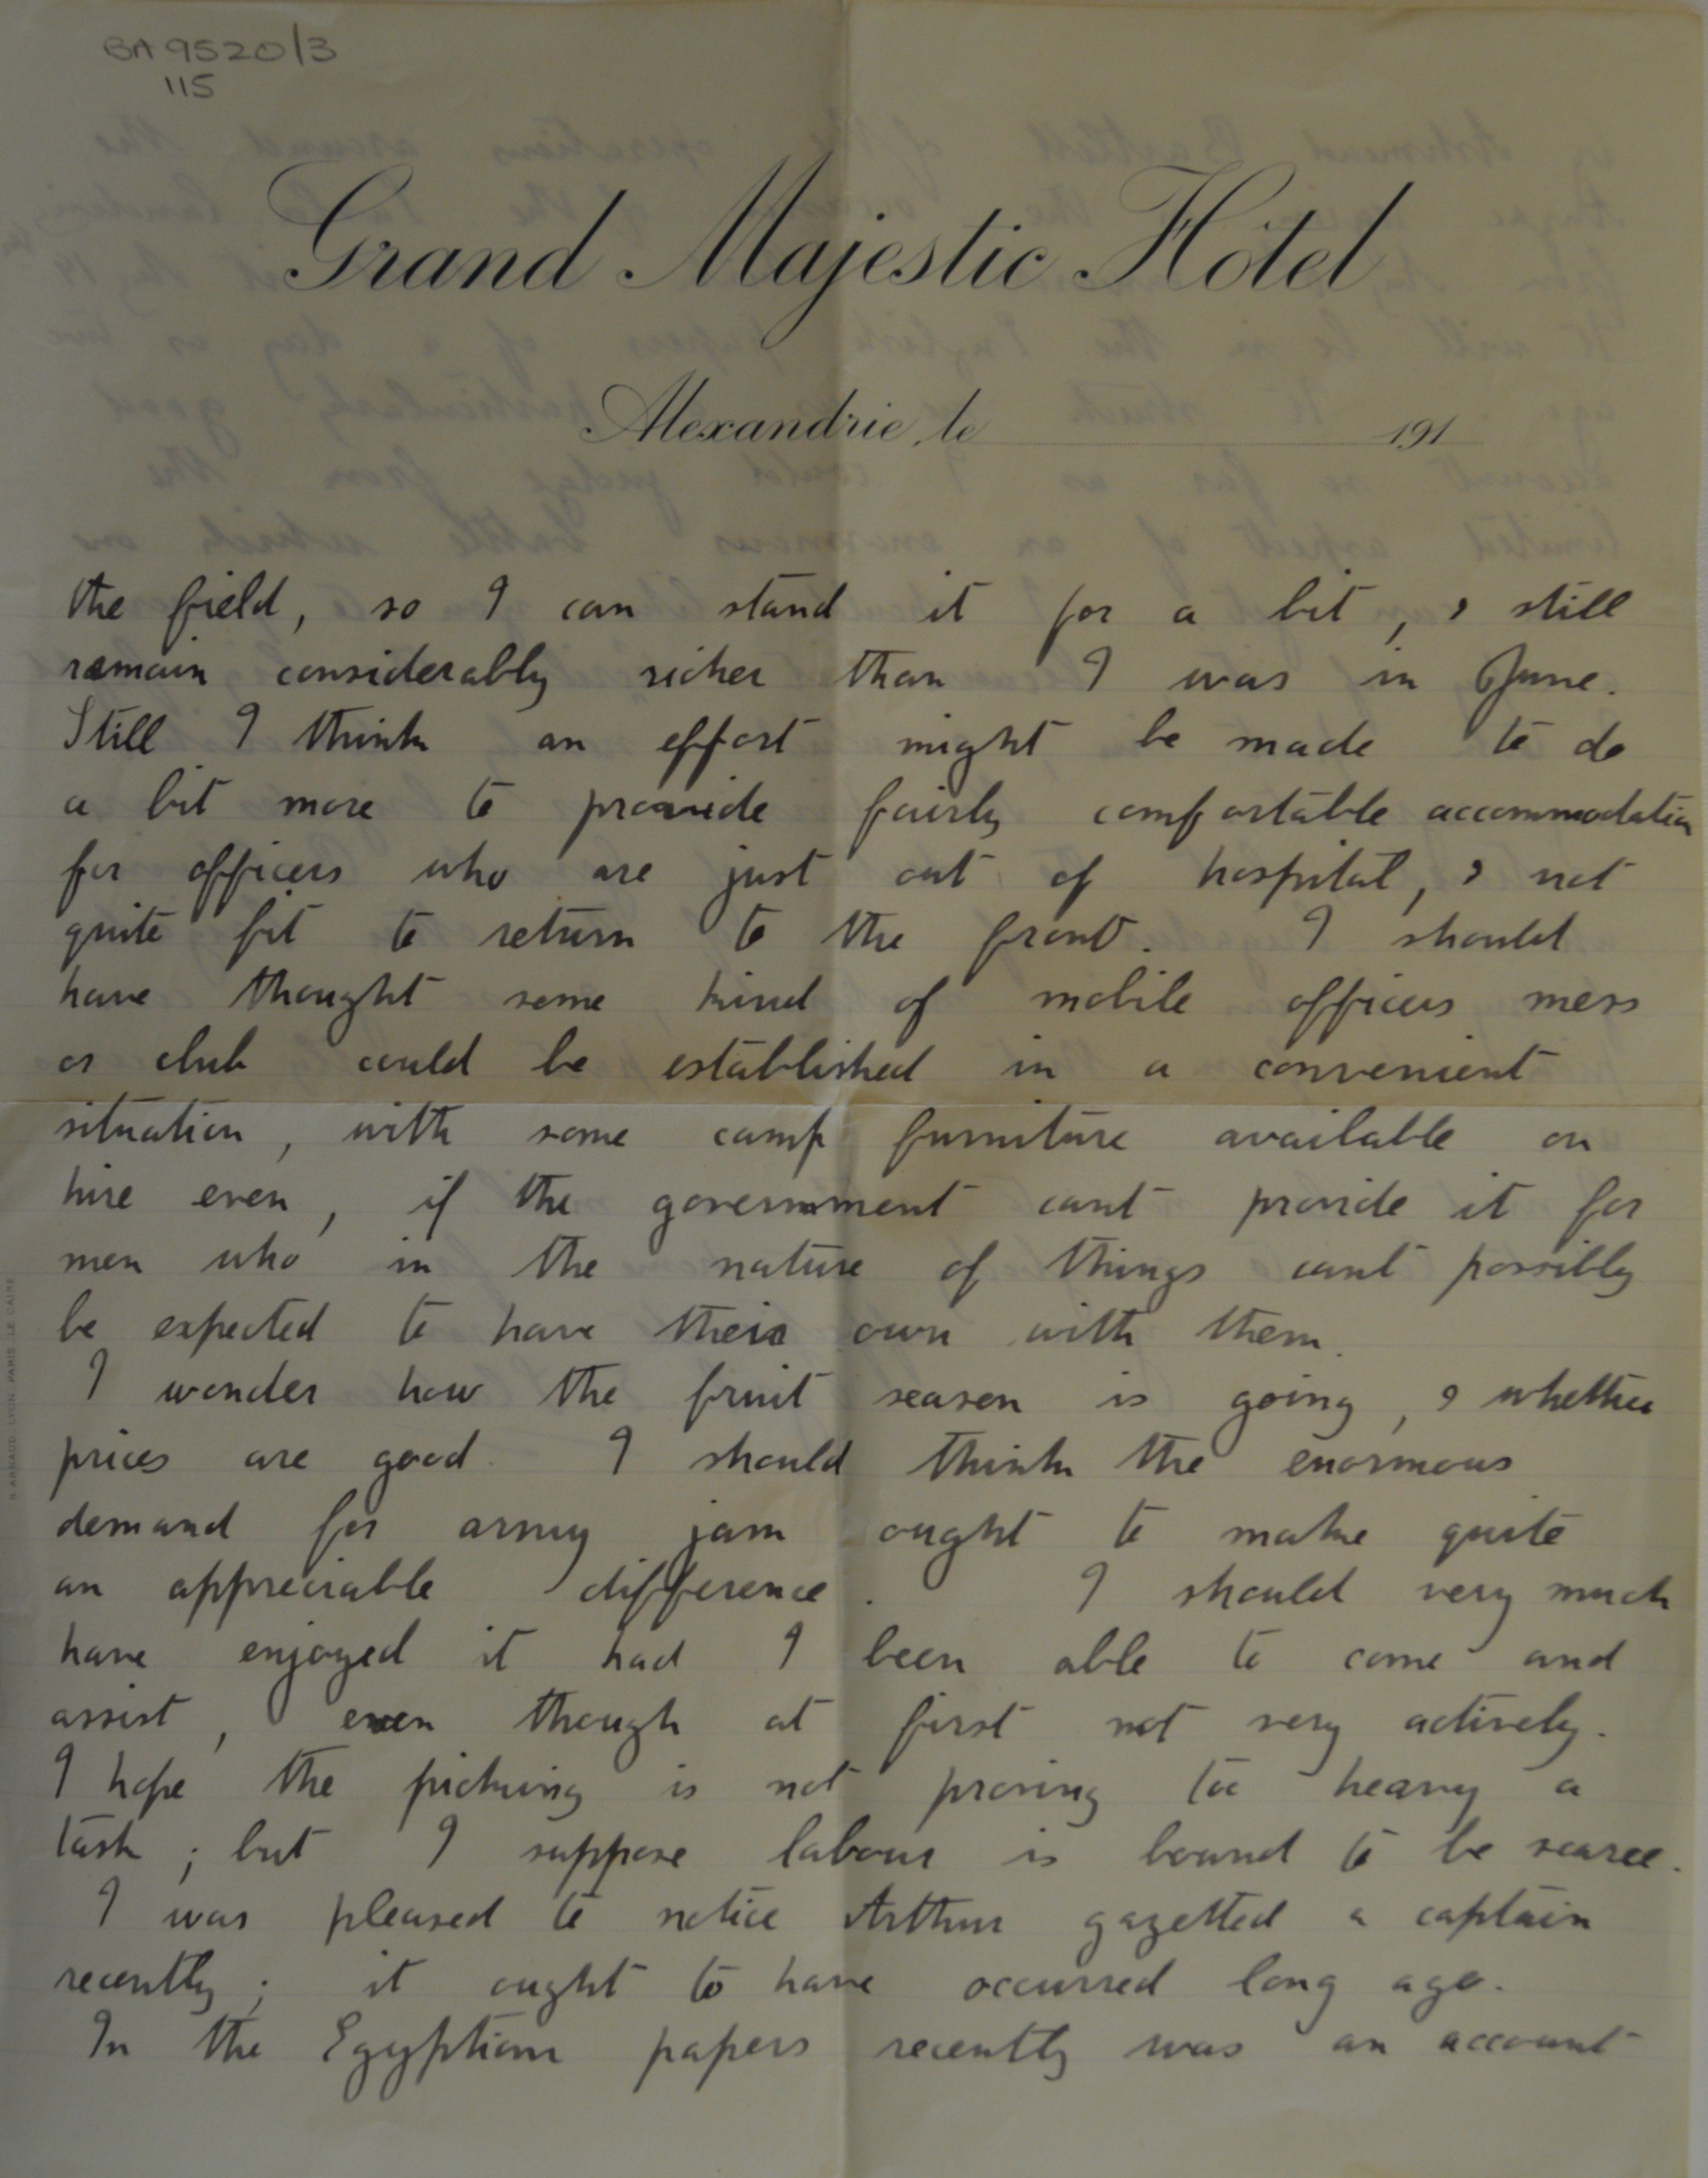 BA 9520/3
115
Grand Majestic Hôtel
Alexandrie, le 191
the field, so I can stand it for a bit, & still
remain considerably richer than I was in June.
Still I think an effort might be made to do
a bit more to provide fairly comfortable accommodation
for officers who are just out of hospital, & not
quite fit to return to the front. I should
have thought some kind of mobile officers mess
or club could be established in a convenient
situation, with some camp furniture available on
hire even, if the government cant provide it for
men who in the nature of things cant possibly
be expected to have their own with them.
I wonder how the fruit season is going, & whether
prices are good. I should think the enormous
demand for army jam ought to make quite
an appreciable difference. I should very much
have enjoyed it had I been able to come and
assist, even though at first not very actively.
I hope the picking is not proving too heavy a
task; but I suppose labour is bound to be scarce.
I was pleased to notice Arthur gazetted a captain
recently; it ought to have occurred long ago.
In the Egyptian papers recently was an account